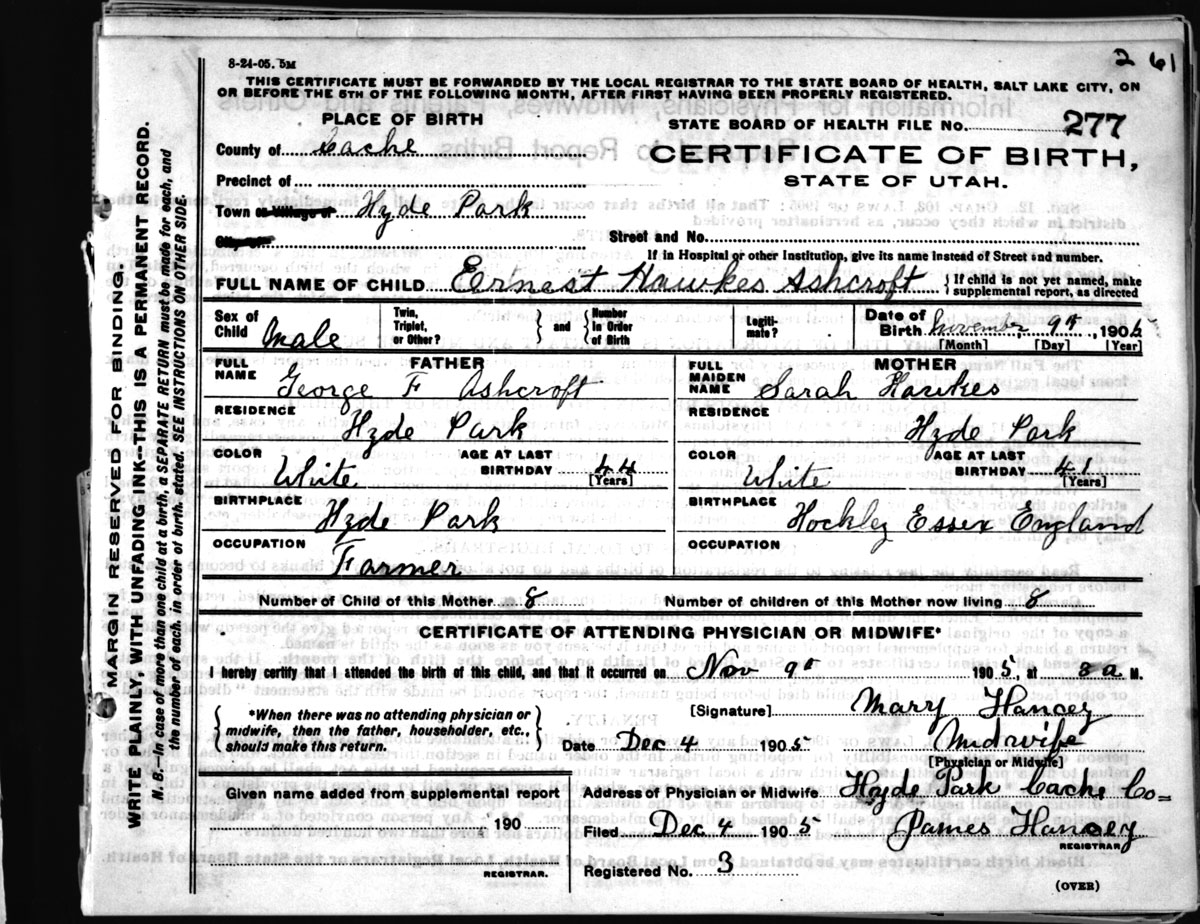 2 61
8-24-05. 5M
THIS CERTIFICATE MUST BE FORWARDED BY THE LOCAL REGISTRAR TO THE STATE BOARD OF HEALTH, SALT LAKE CITY, ON
OR BEFORE THE 5TH OF THE FOLLOWING MONTH, AFTER FIRST HAVING BEEN PROPERLY REGISTERED.
PLACE OF BIRTH
STATE BOARD OF HEALTH FILE No. 277
County of Cache
CERTIFICATE OF BIRTH,
STATE OF UTAH.
Precinct of
Town or Village of Hyde Park
City of
Street and No.
If in Hospital or other Institution, give its name instead of Street and number.
FULL NAME OF CHILD Ernest Hawkes Ashcroft } If child is not yet named, make
supplemental report, as directed
Sex of Child Male Twin, Triplet, or Other? } and { Number in Order of Birth Legiti- mate? Date of Birth November 9th, 1905
[Month] [Day] [Year]
FATHER MOTHER
FULL NAME George F Ashcroft FULL MAIDEN NAME Sarah Hawkes
RESIDENCE Hyde Park RESIDENCE Hyde Park
COLOR White AGE AT LAST BIRTHDAY 44 [Years] COLOR White AGE AT LAST BIRTHDAY 41 [Years]
BIRTHPLACE Hyde Park BIRTHPLACE Hockley Essex England
OCCUPATION Farmer OCCUPATION
Number of Child of this Mother 8 Number of children of this Mother now living 8
CERTIFICATE OF ATTENDING PHYSICIAN OR MIDWIFE*
I hereby certify that I attended the birth of this child, and that it occurred on Nov 9th 1905, at 3 a. M.
{ *When there was no attending physician or
midwife, then the father, householder, etc.,
should make this return. }
[Signature] Mary Hancey
Date Dec 4 1905 Midwife
[Physician or Midwife]
Given name added from supplemental report
190
REGISTRAR.
Address of Physician or Midwife Hyde Park Cache Co=
Filed Dec 4 1905 James Hancey
REGISTRAR
Registered No. 3
(OVER)
MARGIN RESERVED FOR BINDING.
WRITE PLAINLY, WITH UNFADING INK—THIS IS A PERMANENT RECORD.
N. B.—In case of more than one child at a birth, a SEPARATE RETURN must be made for each, and
the number of each, in order of birth, stated. SEE INSTRUCTIONS ON OTHER SIDE.